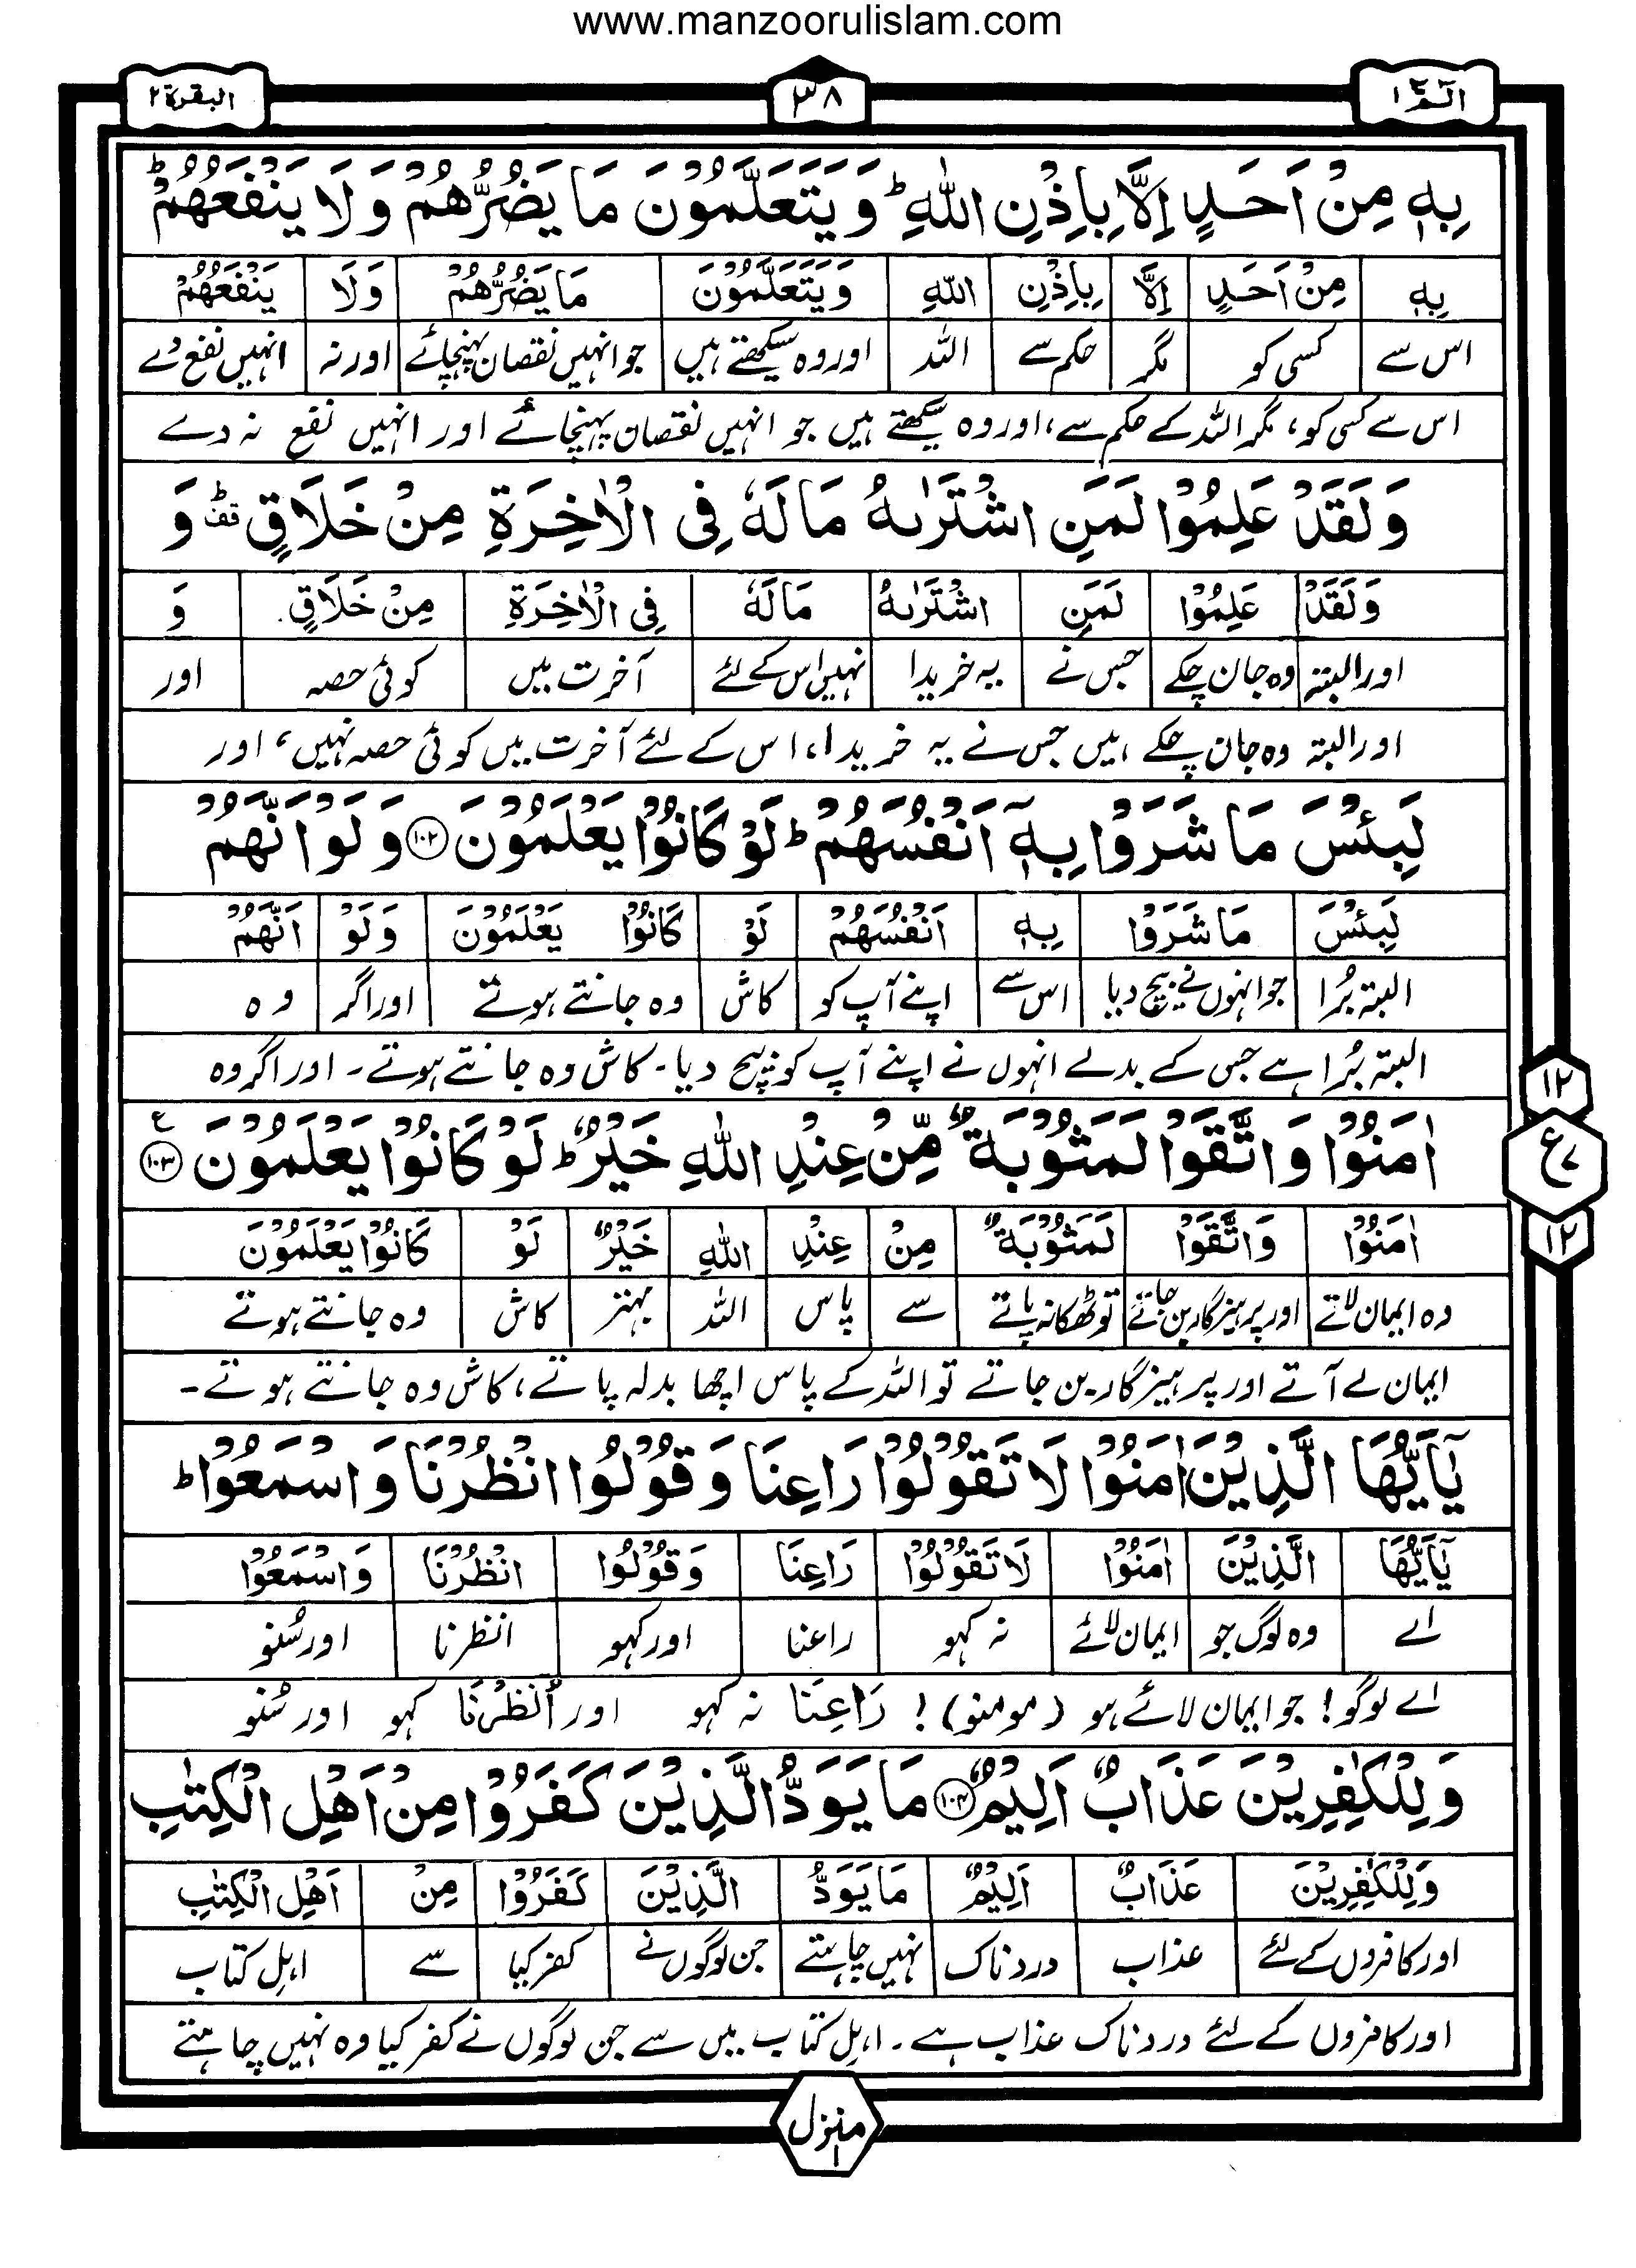 www.manzoorulislam.com
الٓمّٓ ١ ٣٨ البقرة ٢
بِهٖ مِنْ اَحَدٍ اِلَّا بِاِذْنِ اللّٰهِ ؕ وَ يَتَعَلَّمُوْنَ مَا يَضُرُّهُمْ وَ لَا يَنْفَعُهُمْ ؕ
بِهٖ مِنْ اَحَدٍ اِلَّا بِاِذْنِ اللّٰهِ وَيَتَعَلَّمُوْنَ مَا يَضُرُّهُمْ وَلَا يَنْفَعُهُمْ
اس سے کسی کو مگر حکم سے اللہ اور وہ سیکھتے ہیں جو انہیں نقصان پہنچائے اور نہ انہیں نفع دے
اس سے کسی کو، مگر اللہ کے حکم سے، اور وہ سیکھتے ہیں جو انہیں نقصان پہنچائے اور انہیں نفع نہ دے
وَ لَقَدْ عَلِمُوْا لَمَنِ اشْتَرٰىهُ مَا لَهٗ فِي الْاٰخِرَةِ مِنْ خَلَاقٍ ؕ قف وَ
وَلَقَدْ عَلِمُوْا لَمَنِ اشْتَرٰىهُ مَالَهٗ فِي الْاٰخِرَةِ مِنْ خَلَاقٍ وَ
اور البتہ وہ جان چکے جس نے یہ خریدا نہیں اس کے لئے آخرت میں کوئی حصہ اور
اور البتہ وہ جان چکے ہیں جس نے یہ خریدا، اس کے لئے آخرت میں کوئی حصہ نہیں، اور
لَبِئْسَ مَا شَرَوْا بِهٖۤ اَنْفُسَهُمْ ؕ لَوْ كَانُوْا يَعْلَمُوْنَ ١٠٢ وَ لَوْ اَنَّهُمْ
لَبِئْسَ مَا شَرَوْا بِهٖ اَنْفُسَهُمْ لَوْ كَانُوْا يَعْلَمُوْنَ وَلَوْ اَنَّهُمْ
البتہ بُرا جو انہوں نے بیچ دیا اس سے اپنے آپ کو کاش وہ جانتے ہوتے اور اگر وہ
البتہ بُرا ہے جس کے بدلے انہوں نے اپنے آپ کو بیچ دیا۔ کاش وہ جانتے ہوتے۔ اور اگر وہ
اٰمَنُوْا وَ اتَّقَوْا لَمَثُوْبَةٌ مِّنْ عِنْدِ اللّٰهِ خَيْرٌ ؕ لَوْ كَانُوْا يَعْلَمُوْنَ ١٠٣ ع
اٰمَنُوْا وَاتَّقَوْا لَمَثُوْبَةٌ مِنْ عِنْدِ اللّٰهِ خَيْرٌ لَوْ كَانُوْا يَعْلَمُوْنَ
وہ ایمان لاتے اور پرہیزگار بن جاتے تو ٹھکانہ پاتے سے پاس اللہ بہتر کاش وہ جانتے ہوتے
ایمان لے آتے اور پرہیزگار بن جاتے تو اللہ کے پاس اچھا بدلہ پاتے، کاش وہ جانتے ہوتے۔
يٰۤاَيُّهَا الَّذِيْنَ اٰمَنُوْا لَا تَقُوْلُوْا رَاعِنَا وَ قُوْلُوا انْظُرْنَا وَ اسْمَعُوْا ؕ
يٰۤاَيُّهَا الَّذِيْنَ اٰمَنُوْا لَا تَقُوْلُوْا رَاعِنَا وَقُوْلُوا انْظُرْنَا وَاسْمَعُوْا
اے وہ لوگ جو ایمان لائے نہ کہو راعنا اور کہو انظرنا اور سُنو
اے لوگو! جو ایمان لائے ہو (مومنو)! رَاعِنَا نہ کہو اور اُنْظُرْنَا کہو اور سُنو
وَ لِلْكٰفِرِيْنَ عَذَابٌ اَلِيْمٌ ١٠٤ مَا يَوَدُّ الَّذِيْنَ كَفَرُوْا مِنْ اَهْلِ الْكِتٰبِ
وَلِلْكٰفِرِيْنَ عَذَابٌ اَلِيْمٌ مَا يَوَدُّ الَّذِيْنَ كَفَرُوْا مِنْ اَهْلِ الْكِتٰبِ
اور کافروں کے لئے عذاب دردناک نہیں چاہتے جن لوگوں نے کفر کیا سے اہلِ کتاب
اور کافروں کے لئے دردناک عذاب ہے۔ اہلِ کتاب میں سے جن لوگوں نے کفر کیا وہ نہیں چاہتے
١٢
ع ٧
١٢
منزل ١